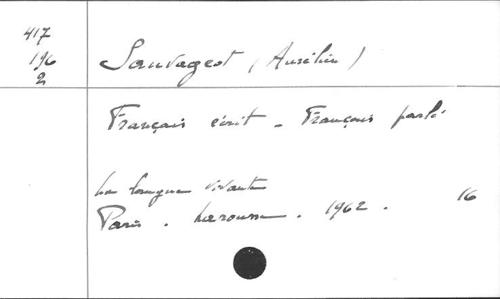 417
196
2
Sauvageot (Aurélien)
Français écrit _ Français parlé
La langue vivante
Paris. Larousse. 1962. 16